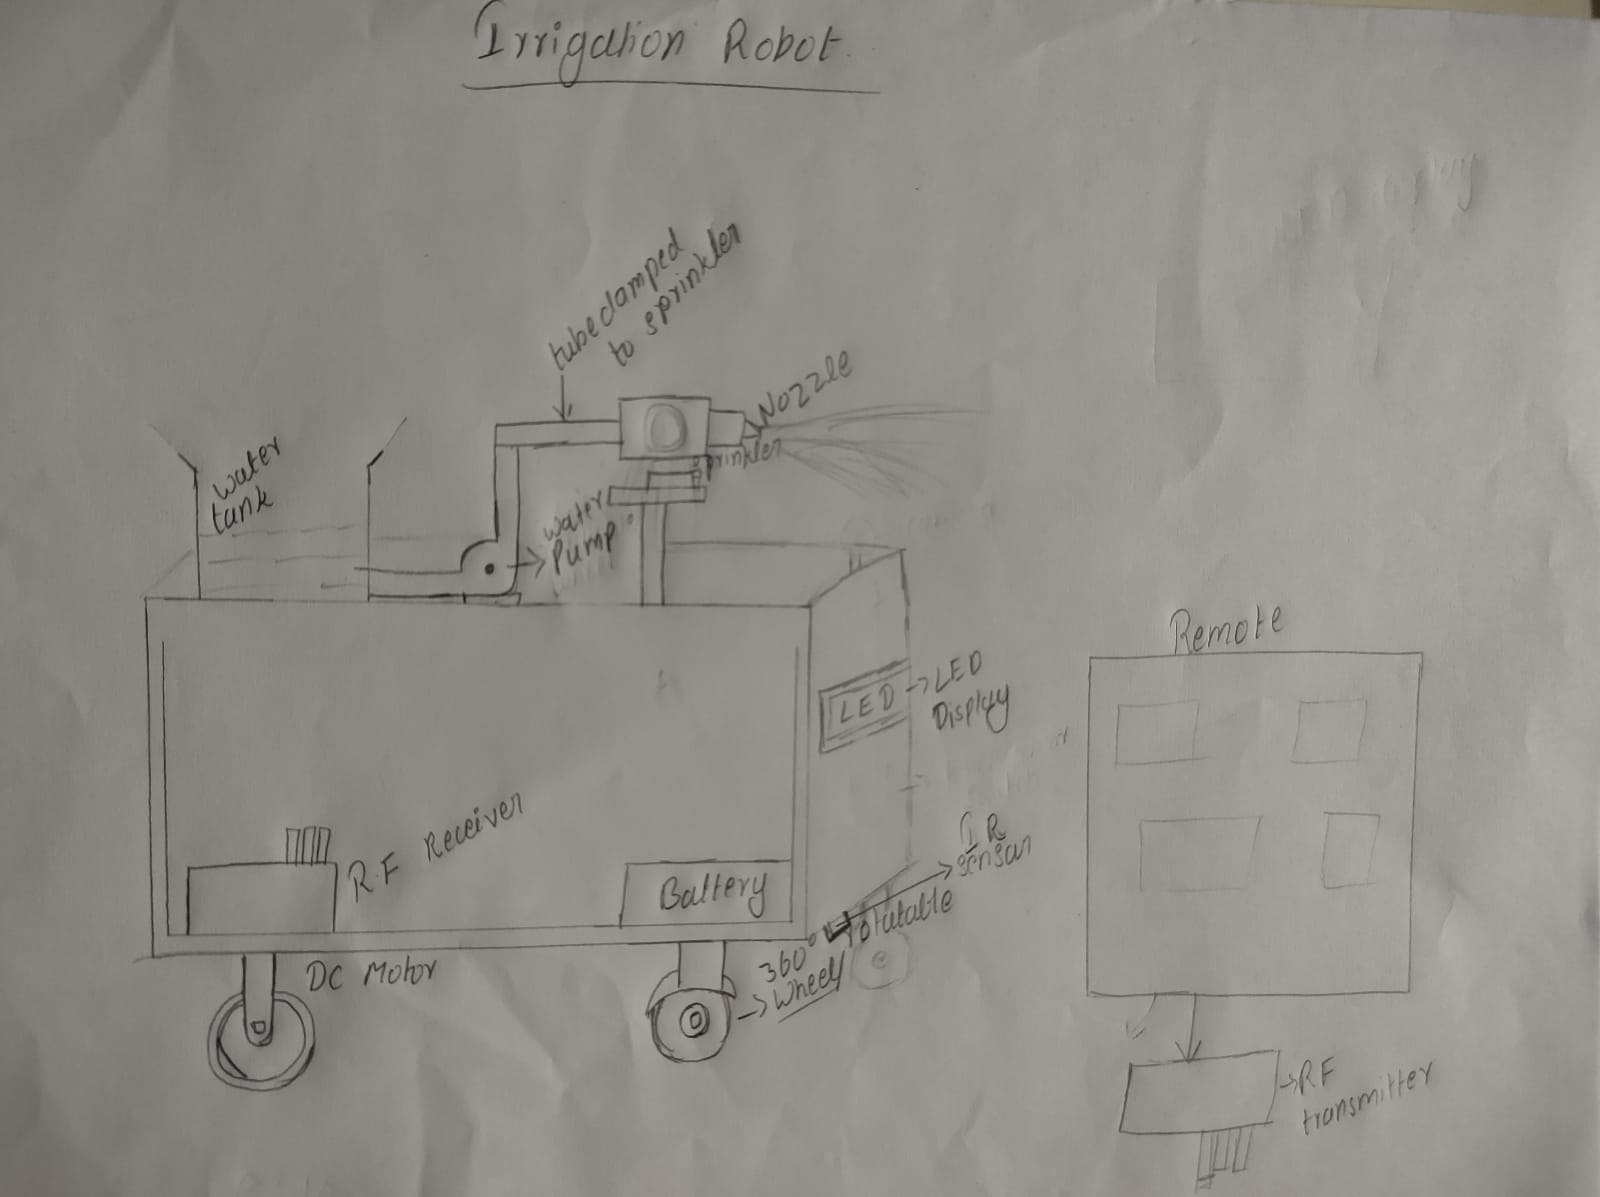 Irrigation Robot.
tube clamped
to sprinkler
Nozzle
sprinkler
water
tank
water
Pump
Remote
LED
LED
Display
R.F Receiver
Battery
IR
sensor
360° rotatable
wheel
DC Motor
RF
transmitter